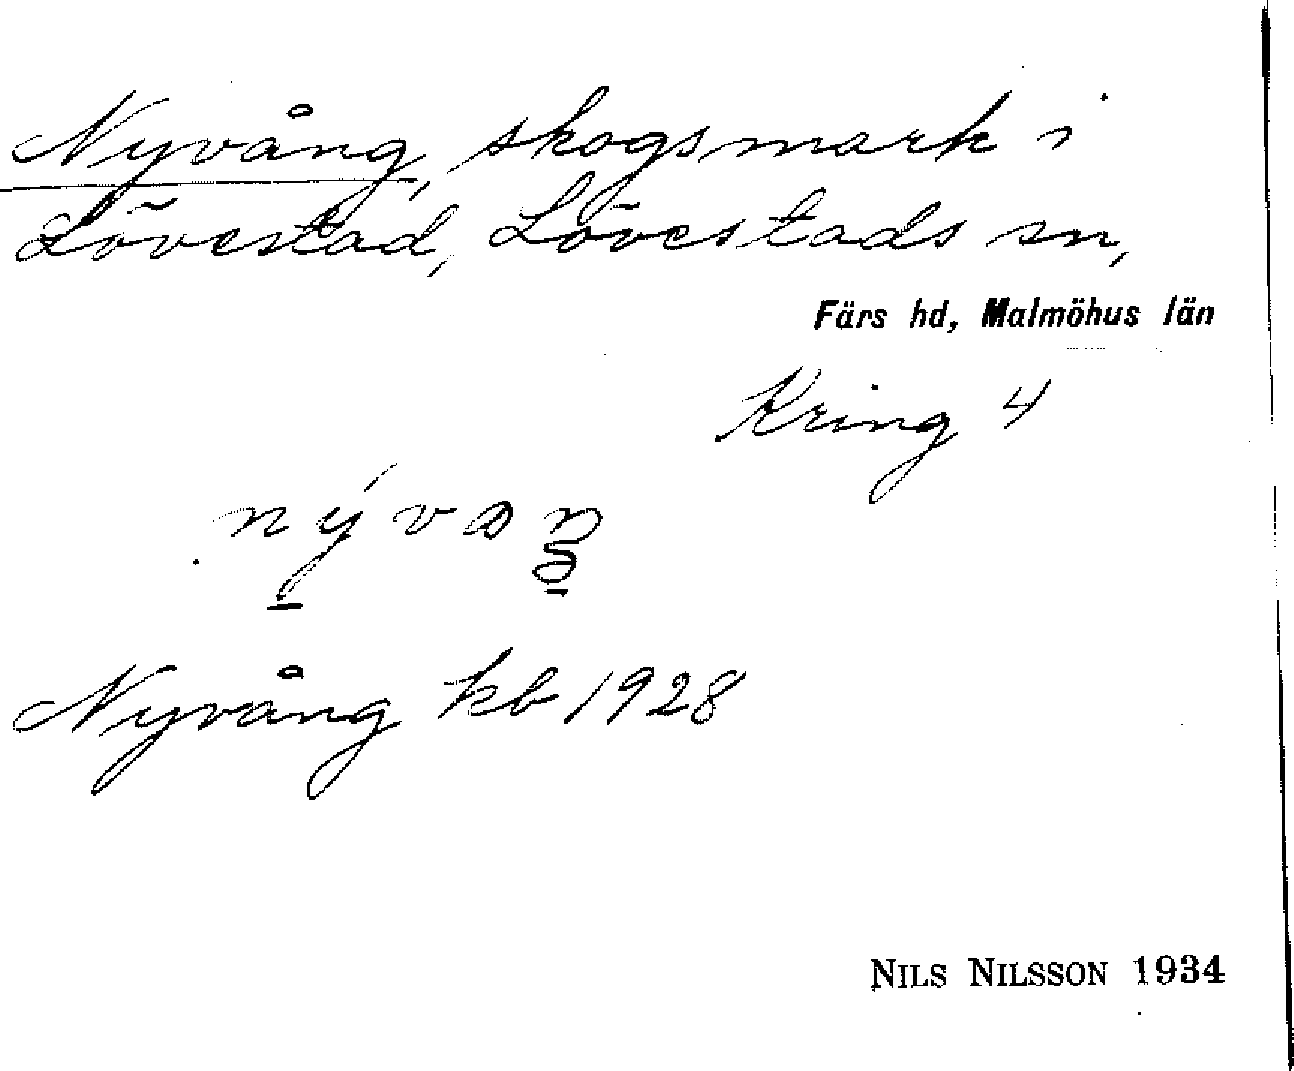 Nyvång, skogsmark i
Lövestad, Lövestads sn,
Färs hd, Malmöhus län
Kring 4
Nyvång kb 1928
NILS NILSSON 1934